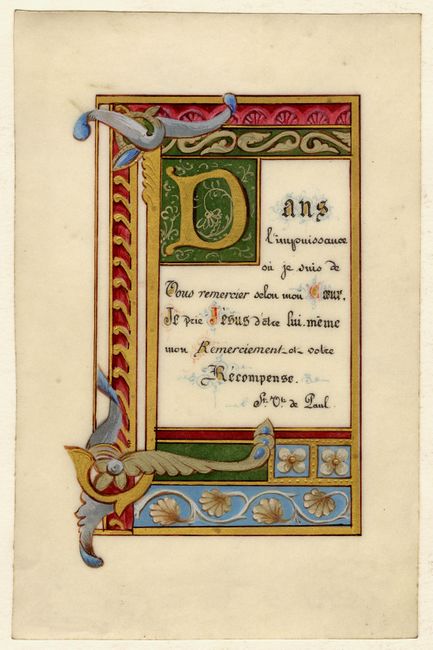 Dans
l'impuissance
où je suis de
Vous remercier selon mon Cœur,
Je prie Jésus d'être lui-même
mon Remerciement et votre
Récompense.
St. Vt. de Paul.